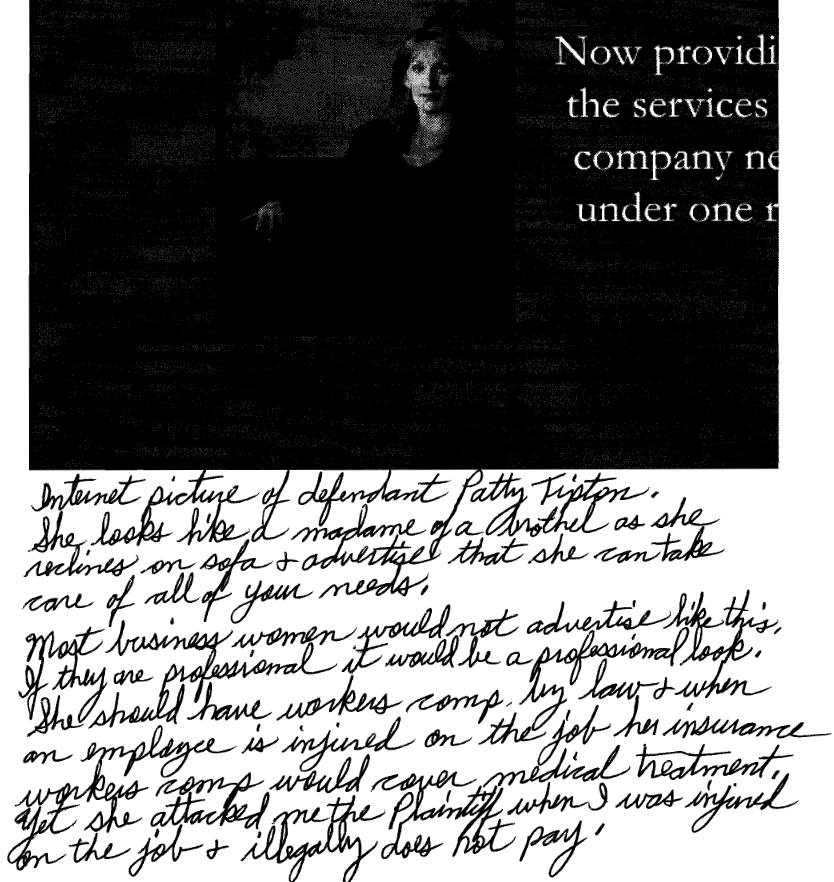 Now providi
the services
company ne
under one r
Internet picture of defendant Patty Tipton.
She looks like a madame of a brothel as she
reclines on sofa & advertise that she can take
care of all of your needs.
Most business women would not advertise like this.
If they are professional it would be a professional look.
She should have workers comp. by law & when
an employee is injured on the job her insurance
workers comp would cover medical treatment.
Yet she attacked me the Plaintiff when I was injured
on the job & illegally does not pay.